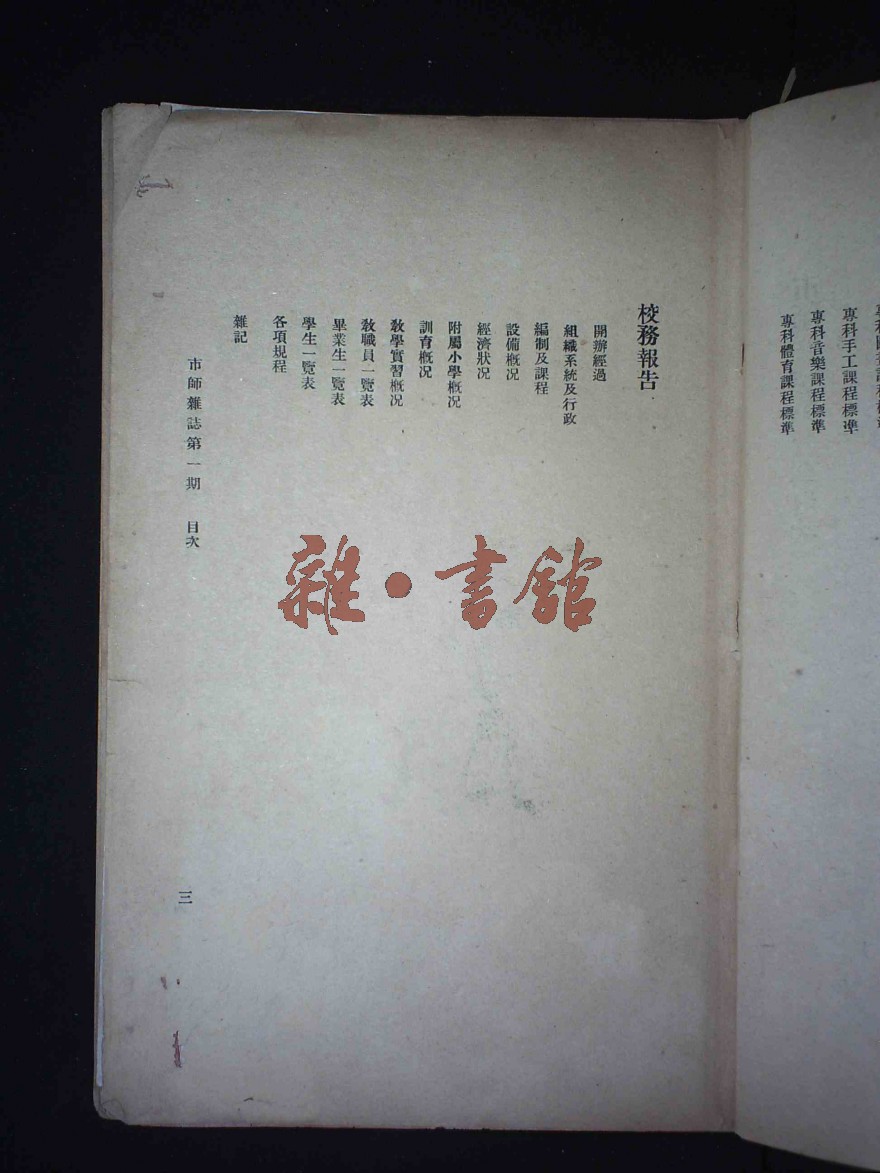 專科手工課程標準
專科音樂課程標準
專科體育課程標準
校務報告
開辦經過
組織系統及行政
編制及課程
設備概况
經濟狀况
附屬小學概况
訓育概况
教學實習概况
教職員一覽表
畢業生一覽表
學生一覽表
各項規程
雜記
市師雜誌第一期 目次
三
雜·書館